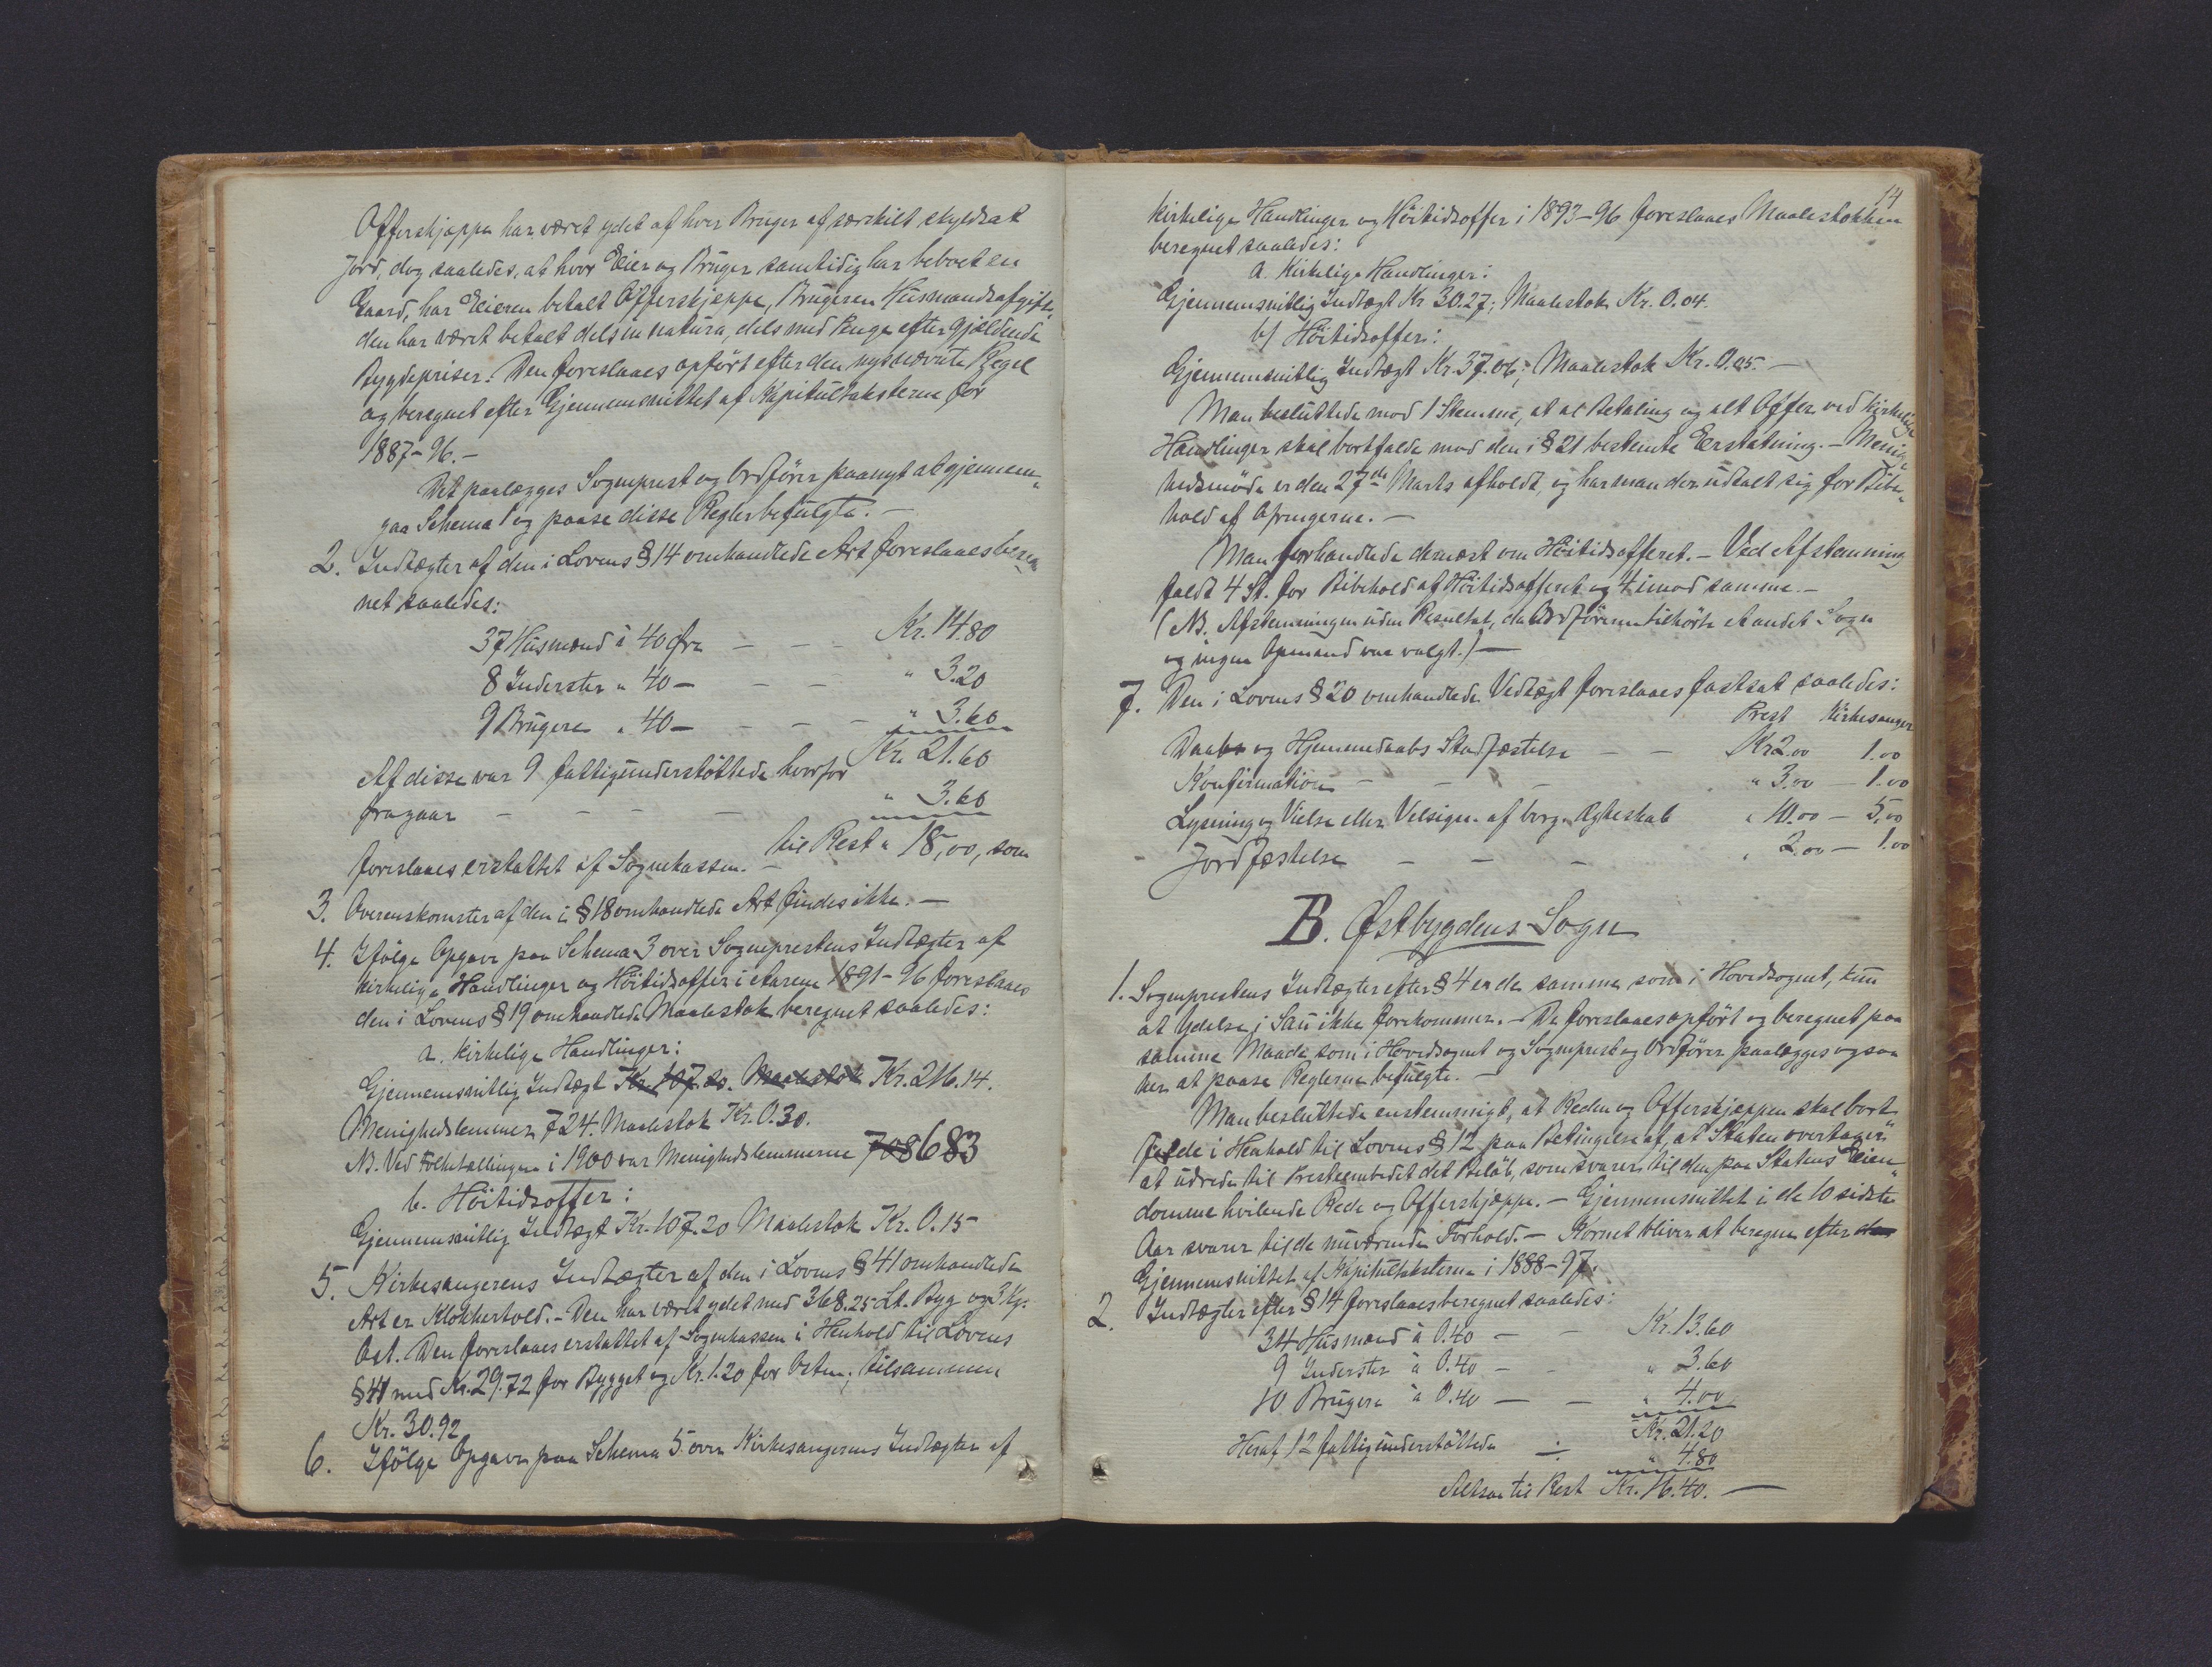 Offerskjæppe har været ydet af hver Bruger af særskilt skyldsat
Jord, dog saaledes, at hvor Eier og Bruger samtidig har beboet en
Gaard, har Eieren betalt Offerskjæppe, Brugeren Husmandsafgift,
den har været betalt dels in natura, dels med Penge efter gjældende
Bygdepriser. Den foreslaaes opført efter den nysnævnte Regel
og beregnet efter Gjennemsnittet af Kapitultaksterne for
1887-96.-
Det paalægges Sogneprest og Ordfører paanyt at gjennem-
gaa Schema 1 og paase disse Regler befulgte. -
2. Indtægter af den i Lovens § 14 omhandlede Art foreslaaes bereg
net saaledes:
37 Husmænd à 40 Øre - - - Kr. 14.80
8 Inderster " 40 - - - " 3.20
9 Brugere " 40 - - - - " 3.60
Kr. 21.60
Af disse var 9 fattigunderstøttede hvorfor
fragaar - - - - " 3.60
til Rest " 18,00, som
foreslaaes erstattet af Sognekassen. -
3. Overenskomster af den i § 18 omhandlede Art findes ikke. -
4. Ifølge Opgave paa Schema 3 over Sogneprestens Indtægter af
kirkelige Handlinger og Höitidsoffer i Aarene 1891-96 foreslaaes
den i Lovens § 19 omhandlede Maalestok beregnet saaledes:
a. Kirkelige Handlinger:
Gjennemsnitlig Indtægt Kr. 107.20. Maalestok Kr. 216.14.
Menighedslemmer 724. Maalestok Kr. 0.30.
NB. Ved Folketællingen i 1900 var Menighedslemmerne 708 683
b. Höitidsoffer:
Gjennemsnitlig Indtægt Kr. 107.20 Maalestok Kr. 0.15
5. Kirkesangerens Indtægter af den i Lovens § 41 omhandlede
Art er Klokkertold. - Den har været ydet med 368.25 Lt. Byg og 3 Kg.
Ost. Den foreslaaes erstattet af Sognekassen i Henhold til Lovens
§ 41 med Kr. 29.72 for Bygget og Kr. 1.20 for Osten; tilsammen
Kr. 30.92
6. Ifölge Opgave paa Schema 5 over Kirkesangerens Indtægter af
14
kirkelige Handlinger og Höitidsoffer i 1893-96 foreslaaes Maalestokken
beregnet saaledes:
a. Kirkelige Handlinger:
Gjennemsnitlig Indtægt Kr 30.27; Maalestok Kr. 0.04.
b) Höitidsoffer:
Gjennemsnitlig Indtægt Kr. 37.06; Maalestok Kr. 0.05. -
Man besluttede mod 1 Stemme, at al Betaling og alt Offer ved kirkelige
Handlinger skal bortfalde mod den i § 21 bestemte Erstatning. - Menig-
hedsmöde er den 27de Marts afholdt, og har man der udtalt sig for Bibe-
hold af Ofringerne. -
Man forhandlede dernæst om Höitidsofferet. - Ved Afstemning
faldt 4 St. for Bibehold af Höitidsofferet og 4 imod samme. -
(NB. Afstemningen uden Resultat, da Ordføreren tilhörte et andet Sogn
og ingen Opmand var valgt.) -
7. Den i Lovens § 20 omhandlede Vedtægt foreslaaes fastsat saaledes:
Prest Kirkesanger
Daab og Hjemmedaabs Stadfæstelse - - Kr 2.00 1.00
Konfirmation - - - " 3.00 - 1.00
Lysning og Vielse eller Velsign. af borg. Ægteskab " 10.00 - 5,00
Jordfæstelse - - - " 2.00 - 1.00
B. Østbygdens Sogn
1. Sogneprestens Indtægter efter § 4 er de samme som i Hovedsognet, kun
at Ydelse i Sau ikke forekommer. - De foreslaaes opført og beregnet paa
samme Maade som i Hovedsognet og Sogneprest og Ordfører paalægges ogsaa
her at paase Reglerne befulgte. -
Man besluttede enstemmigt, at Reden og Offerskjæppen skal bort-
falde i Henhold til Lovens § 12 paa Betingelse af, at Staten overtager
at udrede til Presteembedet det Beløb, som svarer til den paa Statens Eien-
domme hvilende Rede og Offerskjæppe. - Gjennemsnittet i de 10 sidste
Aar svarer til de nuværende Forhold. - Kornet bliver at beregne efter den
Gjennemsnittet af Kapitultaksterne i 1888-97.
2. Indtægter efter § 14 foreslaaes beregnet saaledes:
34 Husmænd à 0.40 - - Kr. 13.60
9 Inderster à 0.40 - " 3.60
10 Brugere à 0.40 - - " 4.00
Kr. 21.20
Heraf 12 fattigunderstöttede ÷ " 4.80
Altsaa til Rest Kr. 16.40. -